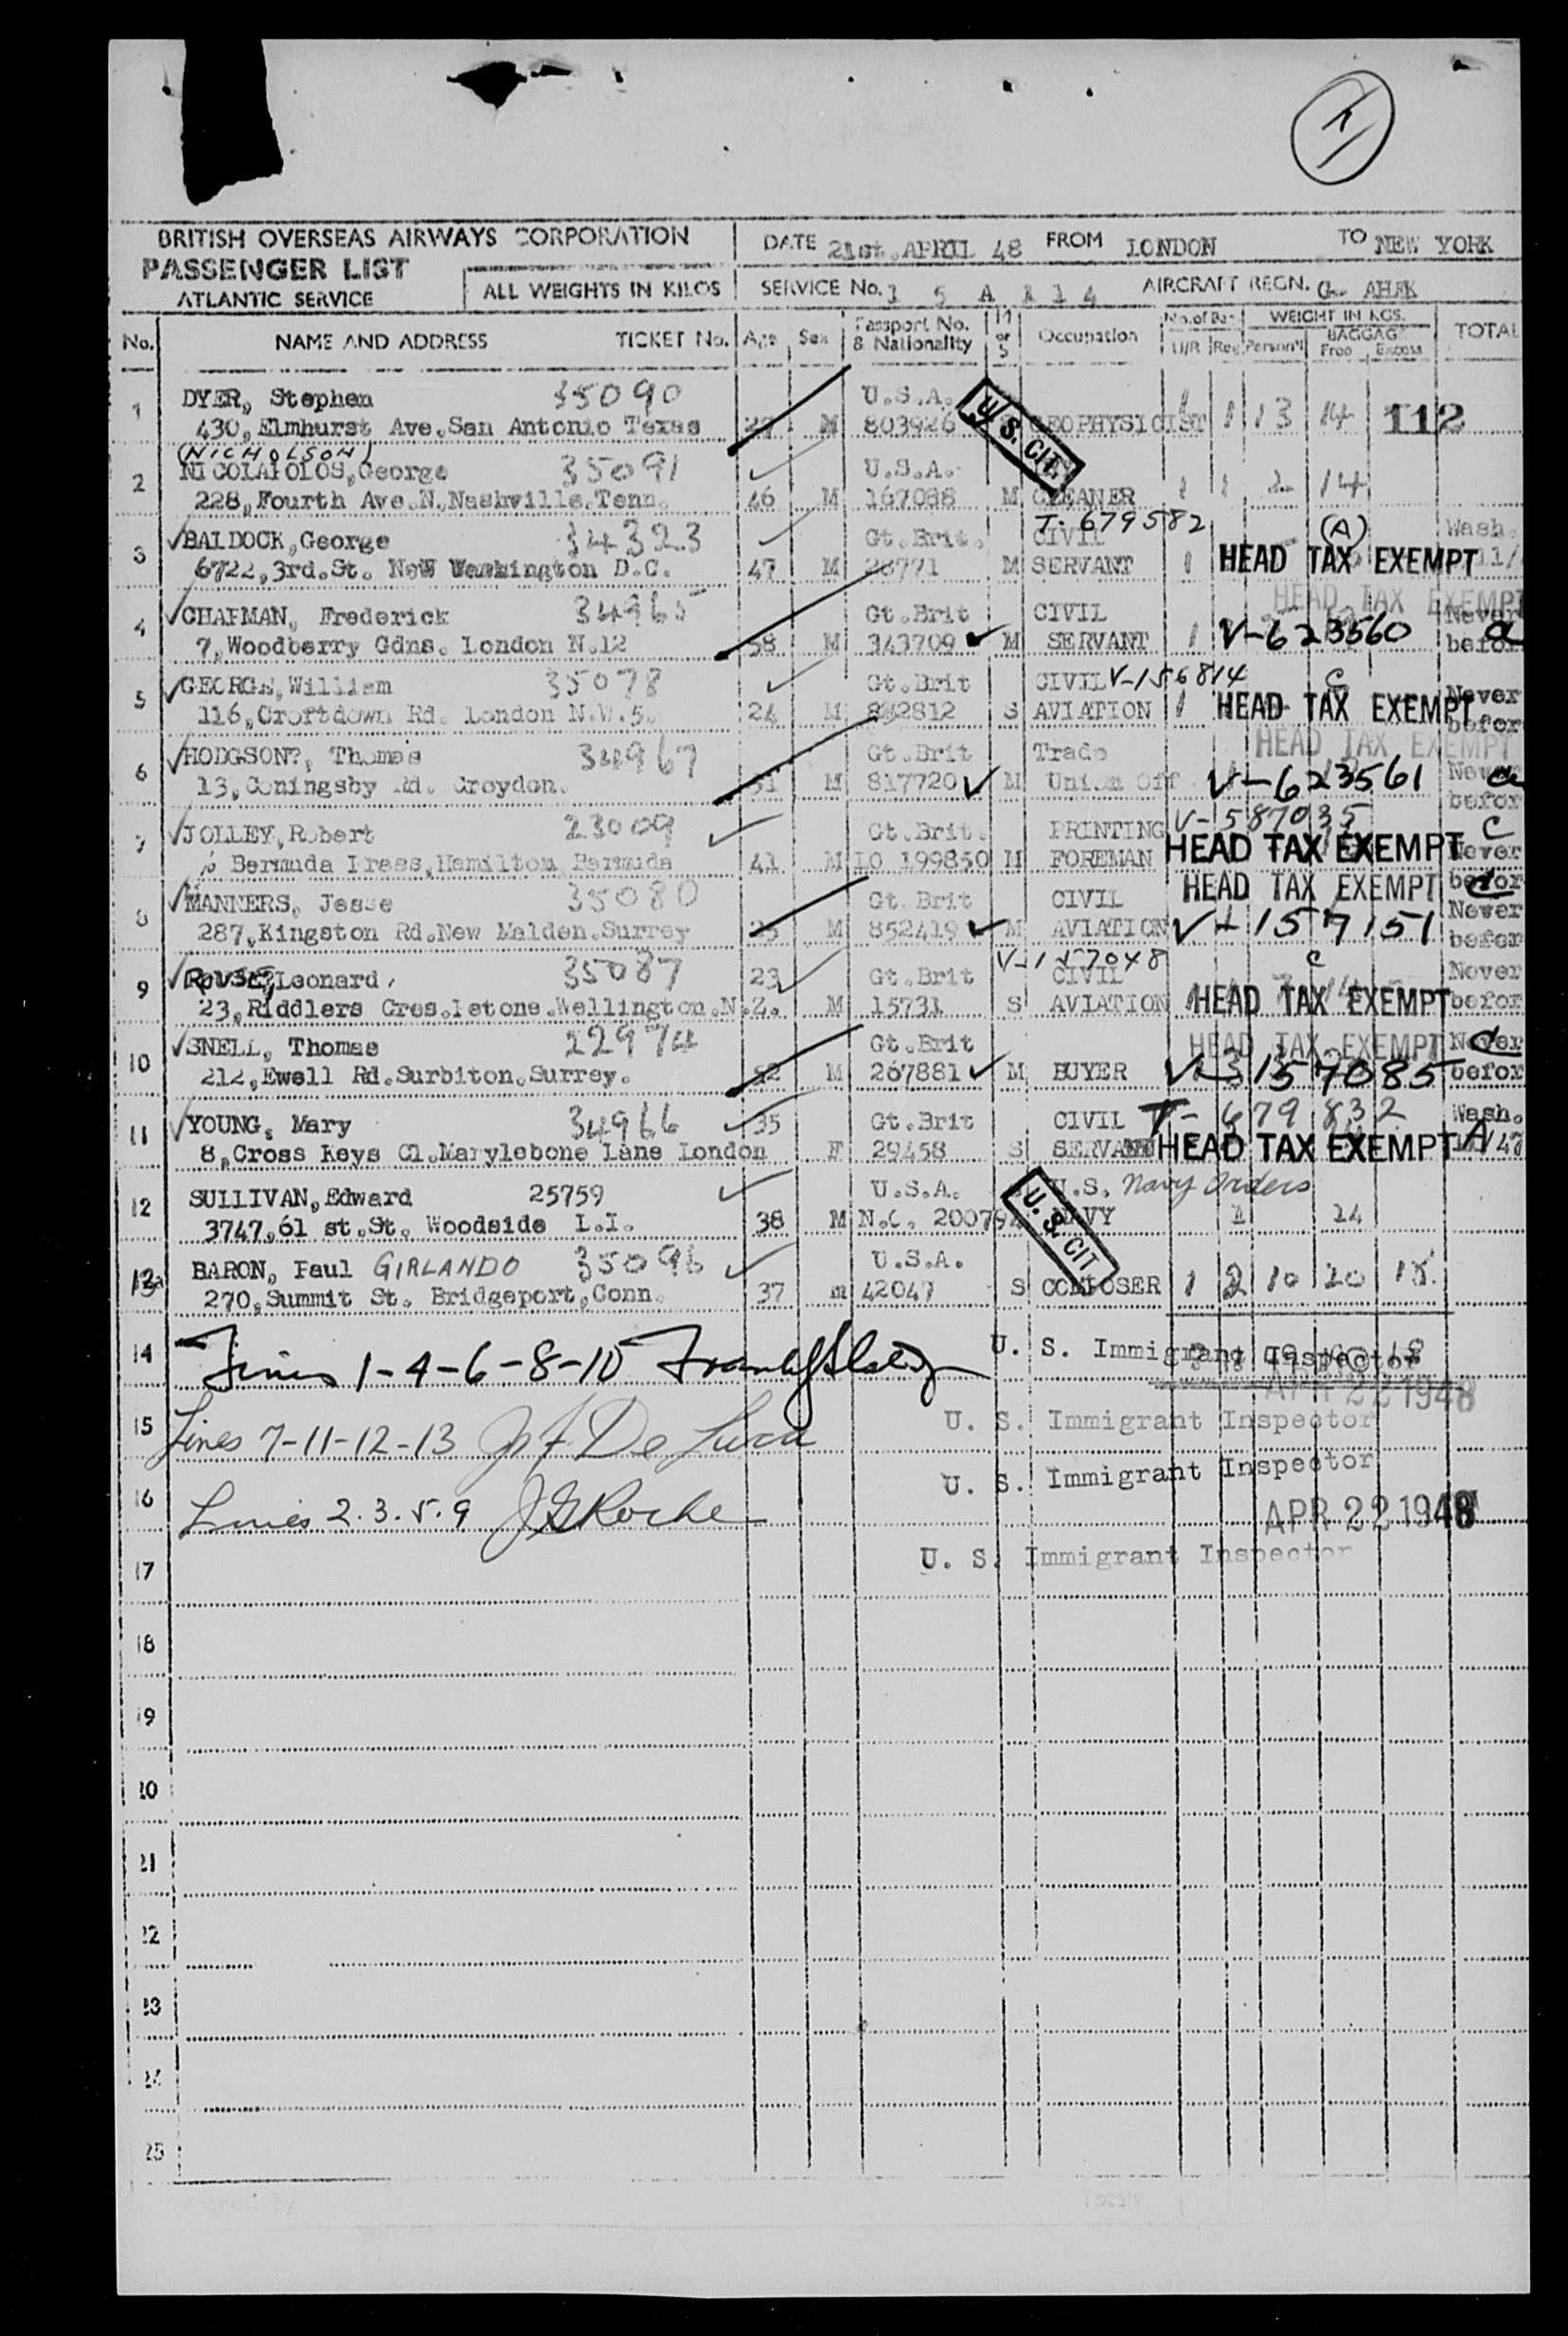 BRITISH OVERSEAS AIRWAYS CORPORATION
PASSENGER LIST
ATLANTIC SERVICE
ALL WEIGHTS IN KILOS
DATE 21st. APRIL 48 FROM LONDON TO NEW YORK
SERVICE No. 1 5 A 1 1 4 AIRCRAFT REGN. G- AHEK
No. NAME AND ADDRESS TICKET No. Age Sex Passport No. & Nationality M or S Occupation No. of Bag U/R Reg WEIGHT IN KGS. Person'l BAGGAGE Free Excess TOTAL
1 DYER, Stephen 35090 U.S.A. U.S. CIT. 1 1 13 14 112
430, Elmhurst Ave.San Antonio Texas 27 M 803926 GEOPHYSICIST
(NICHOLSON)
2 NICOLAIOLOS,George 35091 U.S.A. 1 1 2 14
228,Fourth Ave.N.Nashville.Tenn. 46 M 167088 M CLEANER
T-679582 (A)
3 ✓BALDOCK,George 34323 Gt.Brit. CIVIL Wash.
6722,3rd.St. NeW Washington D.C. 47 M 28771 M SERVANT 1 HEAD TAX EXEMPT 11/
HEAD TAX EXEMPT
4 ✓CHAPMAN, Frederick 34965 Gt.Brit CIVIL Never
7,Woodberry Gdns. London N.12 58 M 343709 ✓ M SERVANT 1 V-623560 befor a
5 ✓GEORGE,William 35078 Gt.Brit CIVIL V-156814 C Never
116,Croftdown Rd. London N.W.5. 24 M 822812 S AVIATION 1 HEAD TAX EXEMPT befor
HEAD TAX EXEMPT
6 ✓HODGSON?, Thomas 34967 Gt.Brit Trade Never
13,Coningsby Rd. Croydon. 51 M 817720 ✓ M Union Off V-623561 befor a
7 ✓JOLLEY,Robert 23009 Gt.Brit. PRINTING V-587035 C
Bermuda Press,Hamilton Bermuda 41 M LO 199850 M FOREMAN HEAD TAX EXEMPT Never
HEAD TAX EXEMPT befor
8 ✓MANNERS, Jesse 35080 Gt.Brit CIVIL Never
287,Kingston Rd.New Malden.Surrey 25 M 852419 ✓ M AVIATION V-157151 befor
V-157048 C
9 ✓ROUSE,Leonard 35087 23 Gt.Brit CIVIL Never
23,Riddlers Cres.Petone.Wellington.N.Z. M 15731 S AVIATION HEAD TAX EXEMPT befor
10 ✓SNELL, Thomas 22974 Gt.Brit HEAD TAX EXEMPT Never
212,Ewell Rd.Surbiton.Surrey. 52 M 267881 ✓ M BUYER V-157085 befor
11 ✓YOUNG, Mary 34966 35 Gt.Brit CIVIL T-679832 Wash.
8,Cross Keys Cl.Marylebone Lane London F 29458 S SERVANT HEAD TAX EXEMPT A 47
12 SULLIVAN,Edward 25759 U.S.A. U.S. Navy Orders
3747,61 st.St. Woodside L.I. 38 M N.C. 200794 NAVY 1 14
U.S. CIT
13 BARON, Paul GIRLANDO 35096 U.S.A.
270,Summit St. Bridgeport,Conn. 37 m 42047 S COMPOSER 1 2 10 20 18
14 Lines 1-4-6-8-10 U. S. Immigrant Inspector
APR 22 1948
15 Lines 7-11-12-13 De Luca U. S. Immigrant Inspector
16 Lines 2.3.5.9 JGRoche U. S. Immigrant Inspector
APR 22 1948
17 U. S. Immigrant Inspector
18
19
20
21
22
23
24
25